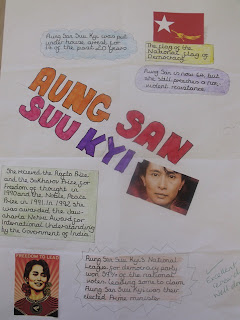 Aung San Suu Kyi was put
under house arrest for
14 of the past 20 years
The flag of the
National flag of
Democracy
Aung San is now 64 but
she still preaches a non
violent resistance.
AUNG SAN
SUU KYI
She received the Rafto Prize
and the Sakharov Prize for
Freedom of thought in
1990 and the Noble Peace
Prize in 1991. In 1992 she
was awarded the Jawa-
harlal Nehru Award for
International Understanding
by the Government of India
Aung San Suu Kyi's National
League for democracy party
won 59% of the national
votes leading some to claim
Aung San Suu Kyi was their
elected Prime minister
FREEDOM TO LEAD
work
Well done